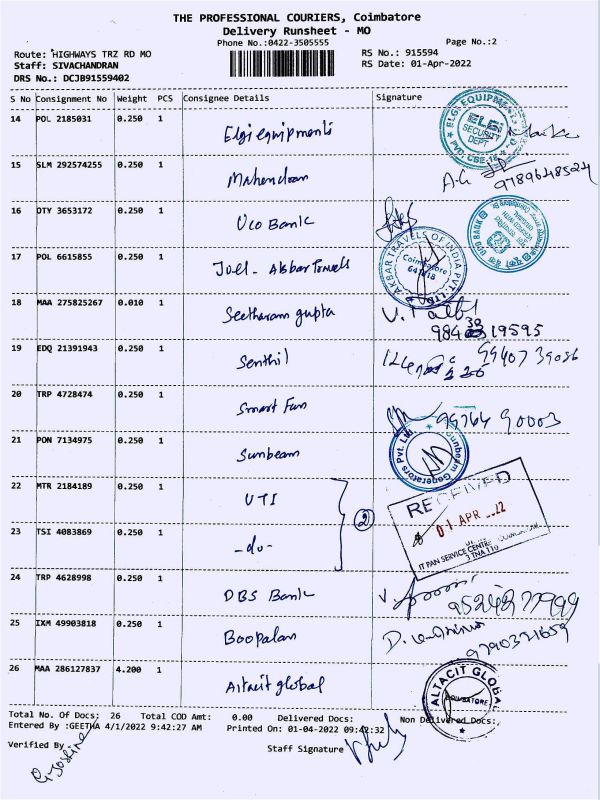 THE PROFESSIONAL COURIERS, Coimbatore
Delivery Runsheet - MO
Phone No.:0422-3505555
Page No.:2
Route: HIGHWAYS TRZ RD MO
RS No.: 915594
Staff: SIVACHANDRAN
RS Date: 01-Apr-2022
DRS No.: DCJB91559402
S No Consignment No Weight PCS Consignee Details Signature
14 POL 2185031 0.250 1 Elgi equipments
ELGI EQUIPMENTS PVT. CBE-18
ELGI SECURITY DEPT
15 SLM 292574255 0.250 1 Mahendran
16 OTY 3653172 0.250 1 Uco Bank
UCO BANK
17 POL 6615855 0.250 1 Joel - Akbar Travels
AKBAR TRAVELS OF INDIA PVT. LTD
Coimbatore
18 MAA 275825267 0.010 1 Seetharam gupta
19595
19 EDQ 21391943 0.250 1 Senthil
99407 39086
20 TRP 4728474 0.250 1 Smart Fun
99764 90003
21 PON 7134975 0.250 1 Sunbeam
Sunbeam Generators Pvt. Ltd
22 MTR 2184189 0.250 1 UTI
2
RECEIVED
01 APR 22
IT PAN SERVICE CENTRE
23 TSI 4083869 0.250 1 -do-
24 TRP 4628998 0.250 1 DBS Bank
25 IXM 49903818 0.250 1 Boopalan
9790321659
26 MAA 286127837 4.200 1 Altacit global
ALTACIT GLOBAL
COIMBATORE
Total No. Of Docs: 26 Total COD Amt: 0.00 Delivered Docs: Non Delivered Docs:
Entered By :GEETHA 4/1/2022 9:42:27 AM Printed On: 01-04-2022 09:42:32
Verified By
Staff Signature